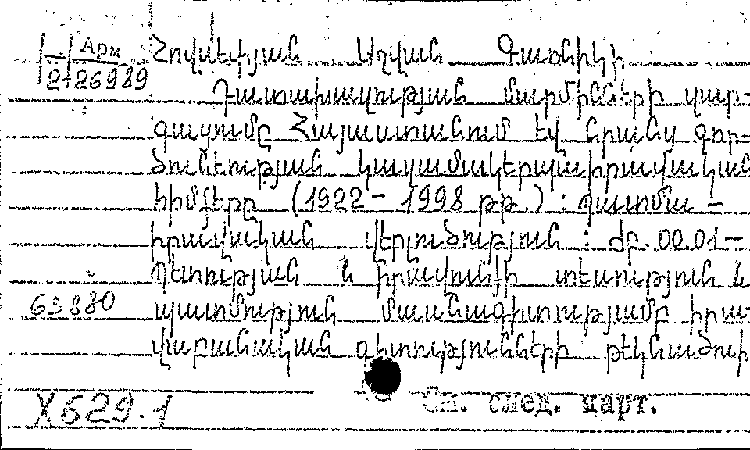 Арм Հովսեփյան Աշվան Գառնիկի
2126989
Դատախազության մարմինների զար-
գացումը Հայաստանում եվ նրանց գոր-
ծունեության կազմակերպաիրավական
հիմքերը (1922 - 1998 թթ.) : պատմա -
իրավական վերլուծություն : ԺԲ.00.01 -
Պետության և իրավունքի տեսություն և
63880 պատմություն մասնագիտությամբ իրա-
վաբանական գիտությունների թեկնածուի
X629.1 См. след. карт.